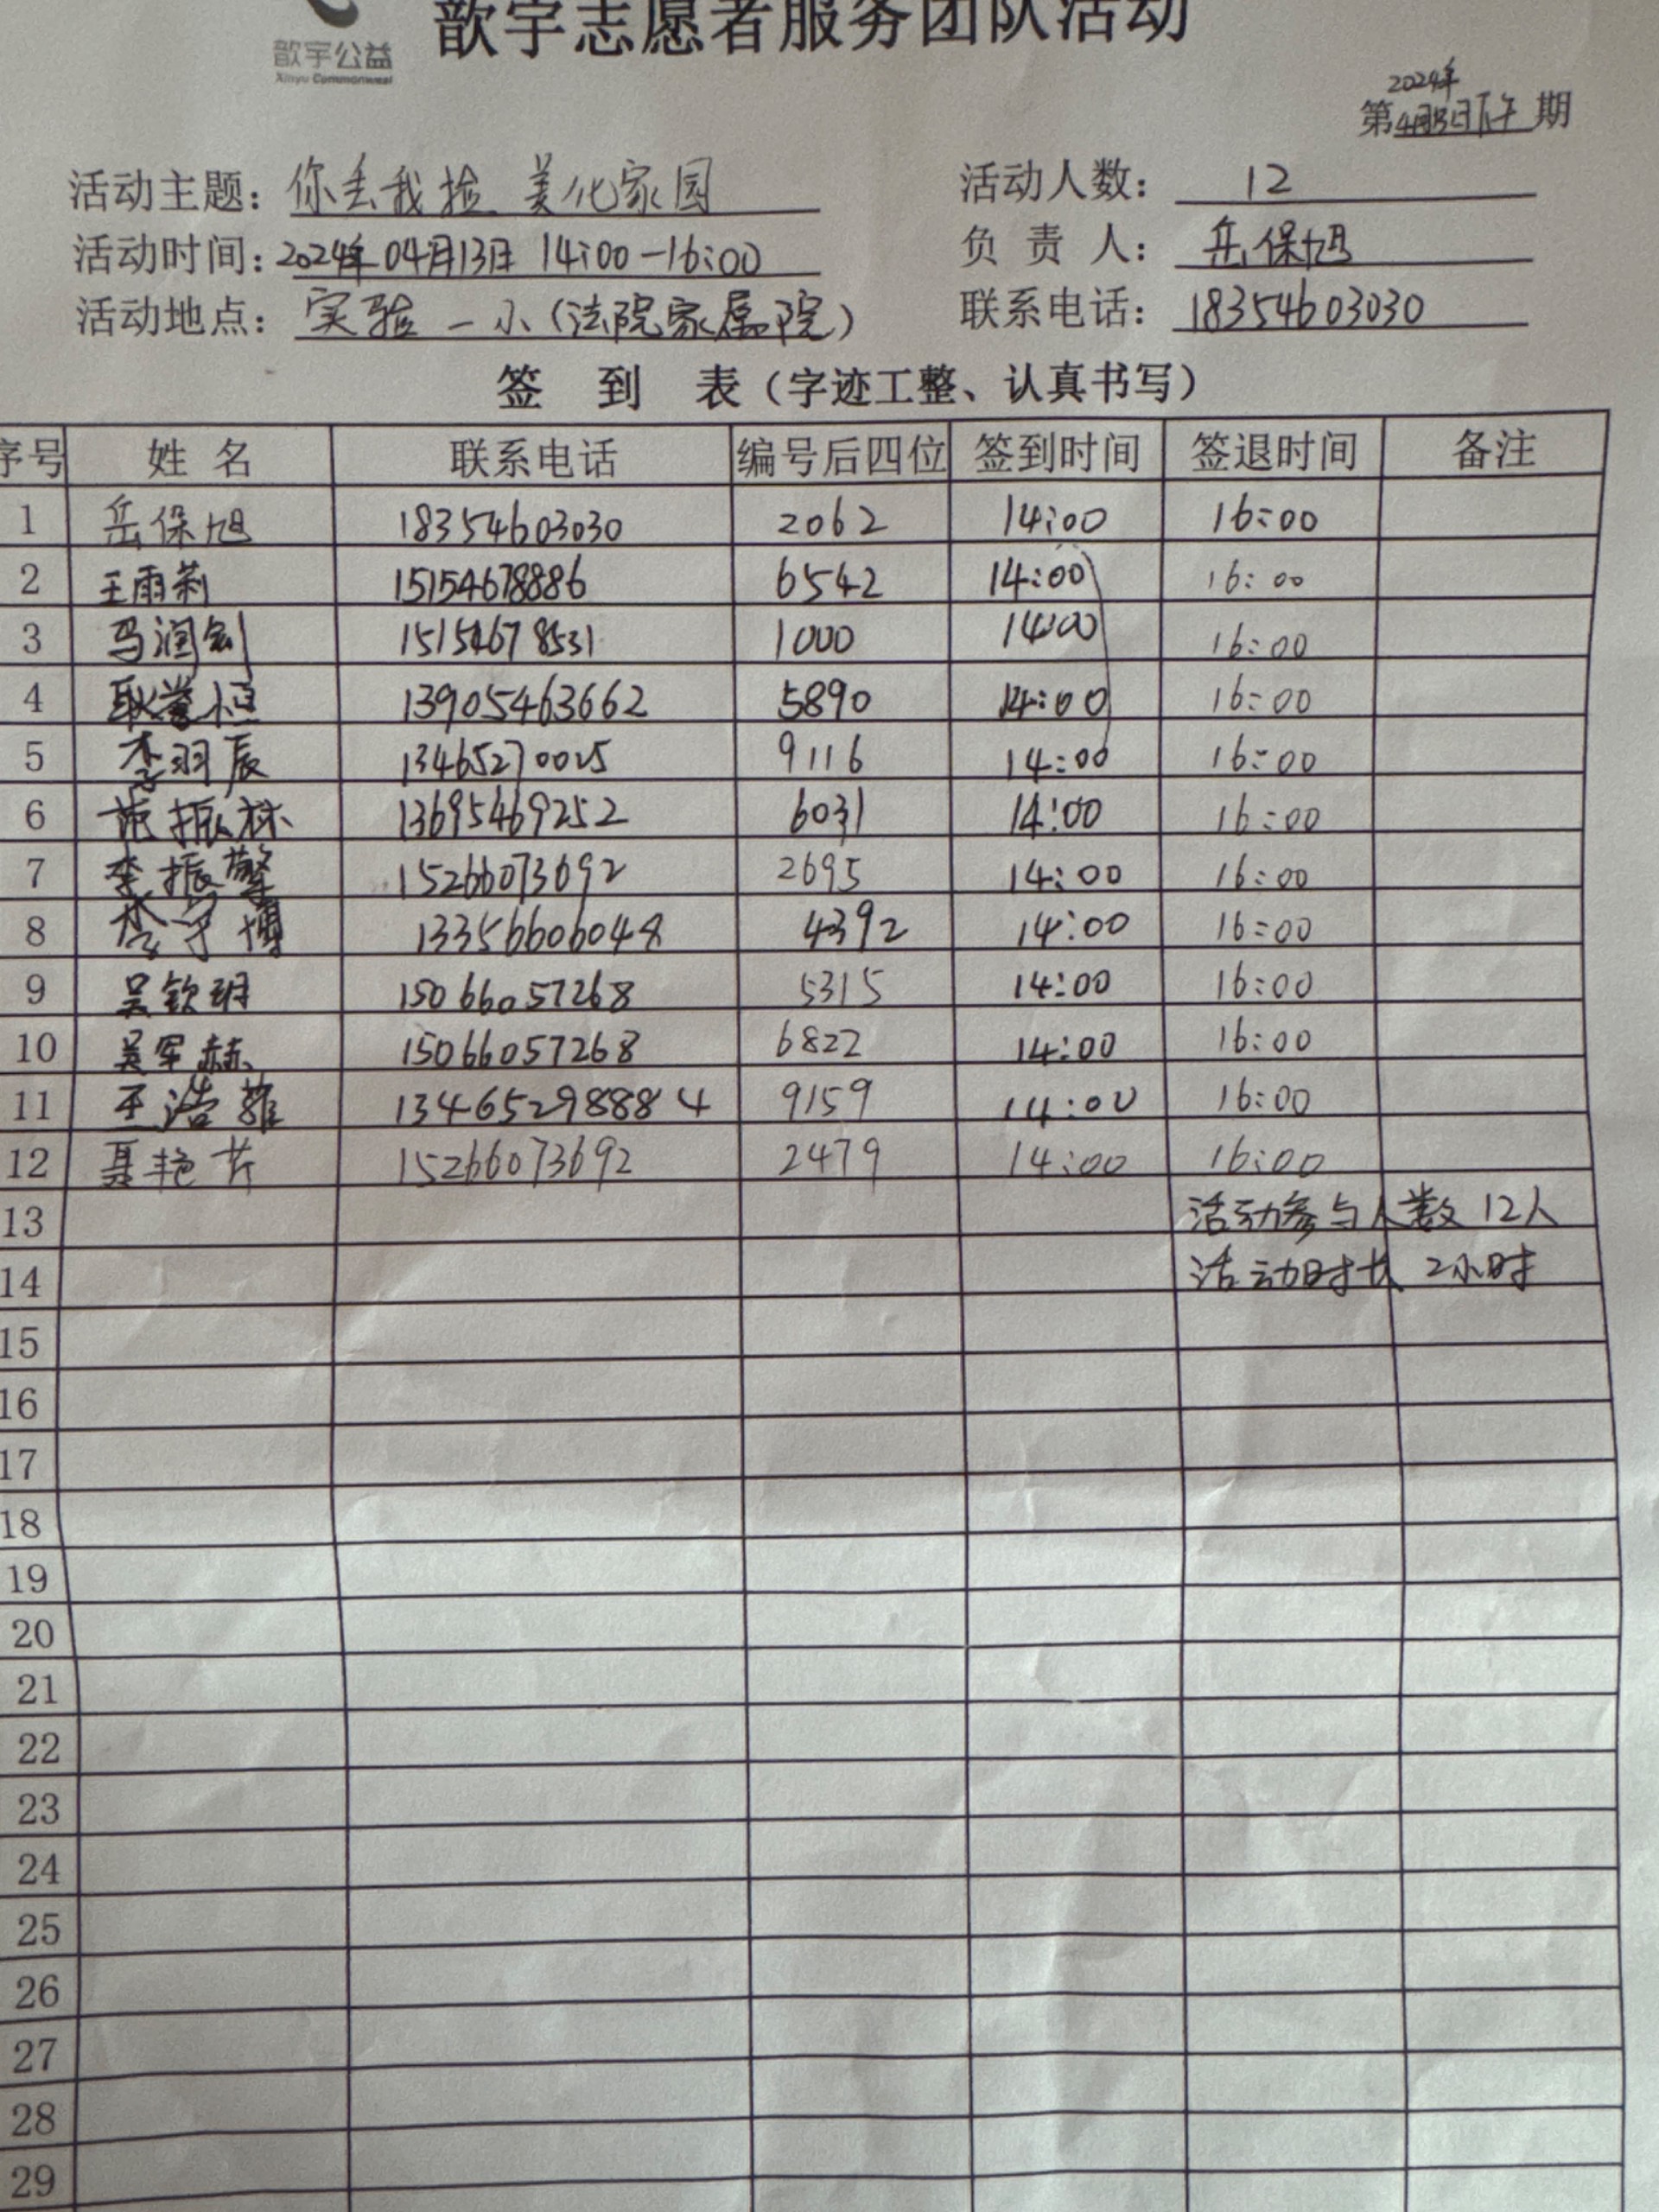 歆宇志愿者服务团队活动
歆宇公益
Xinyu Commonweal
2024年
第4月13日下午期
活动主题：你丢我捡 美化家园 活动人数：12
活动时间：2024年04月13日 14:00-16:00 负责人：岳保旭
活动地点：实验一小（法院家属院） 联系电话：18354603030
签到表（字迹工整、认真书写）
序号 姓名 联系电话 编号后四位 签到时间 签退时间 备注
1 岳保旭 18354603030 2062 14:00 16:00
2 王雨莉 15154678886 6542 14:00 16:00
3 马润剑 15154678531 1000 14:00 16:00
4 耿誉恒 13905463662 5890 14:00 16:00
5 李羽辰 13465270025 9116 14:00 16:00
6 振林 13695469252 6031 14:00 16:00
7 李振擎 15266073692 2695 14:00 16:00
8 李宁博 13356606048 4392 14:00 16:00
9 吴钦玥 15066057268 5315 14:00 16:00
10 吴军赫 15066057268 6822 14:00 16:00
11 王浩 13465298884 9159 14:00 16:00
12 聂艳芹 15266073692 2479 14:00 16:00
13 活动参与人数12人
14 活动时长 2小时
15
16
17
18
19
20
21
22
23
24
25
26
27
28
29